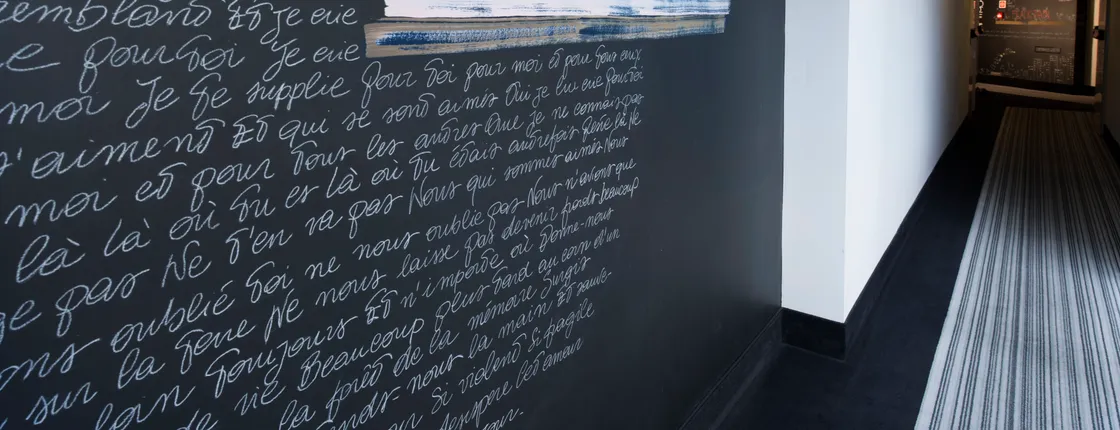 semblant Et Je crie
pour toi Je crie
moi Je te supplie pour toi pour moi et pour tous ceux
s'aiment Et qui se sont aimés Oui je lui crie pour toi
moi et pour tous les autres Que je ne connais pas
là là où tu es là où tu étais autrefois Reste là Ne
pas Ne t'en va pas Nous qui sommes aimés Nous
oublié toi ne nous oublie pas Nous n'avions que
sur la terre Ne nous laisse pas devenir froids Beaucoup
toujours Et n'importe où Donne-nous
de vie Beaucoup plus tard au coin d'un
la forêt de la mémoire Surgis
tends-nous la main Et sauve-
Si violent Si fragile
désespéré Cet amour